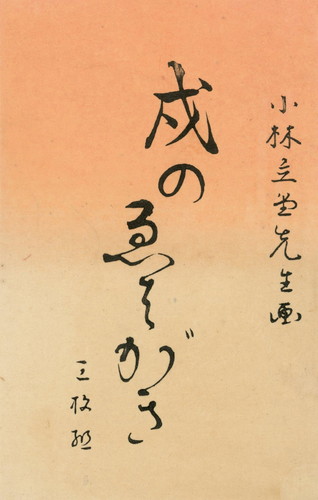 小林立堂先生画
戌のゑはがき
三枚組